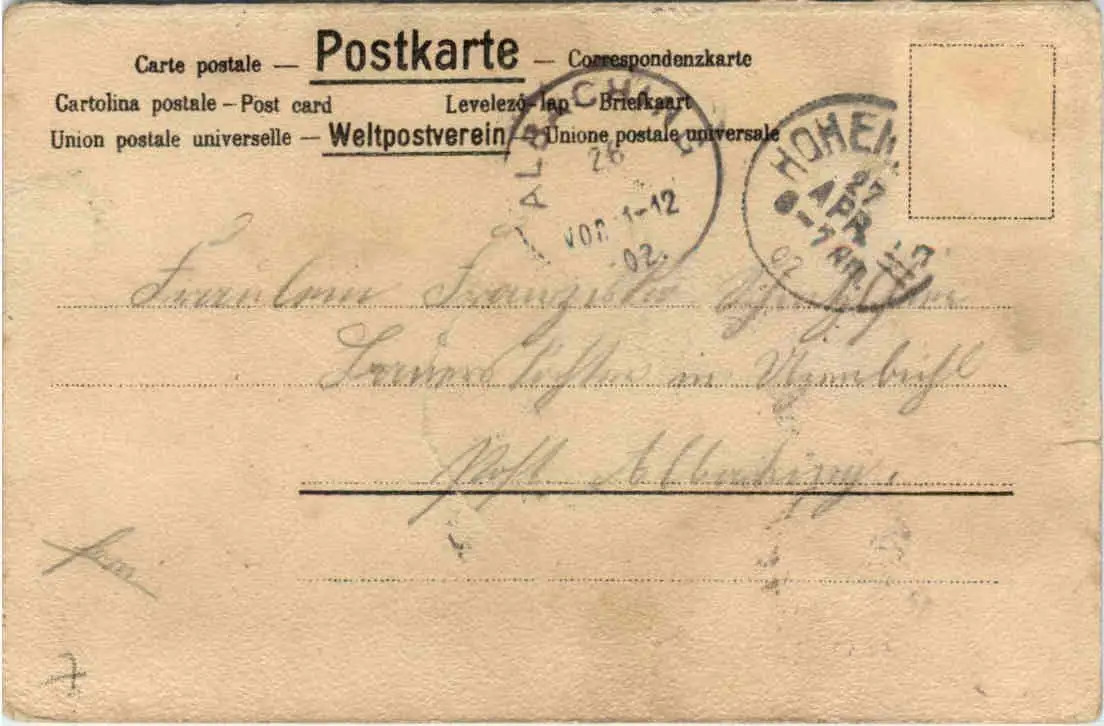 Carte postale — Postkarte — Correspondenzkarte
Cartolina postale – Post card Levelező-lap – Briefkaart
Union postale universelle — Weltpostverein – Unione postale universale
ALBACHING
26
VOR 11-12
02.
HOHEN
27
APR
6-7
02
Fräulein Franziska
Bauers Tochter in
Post Albaching.